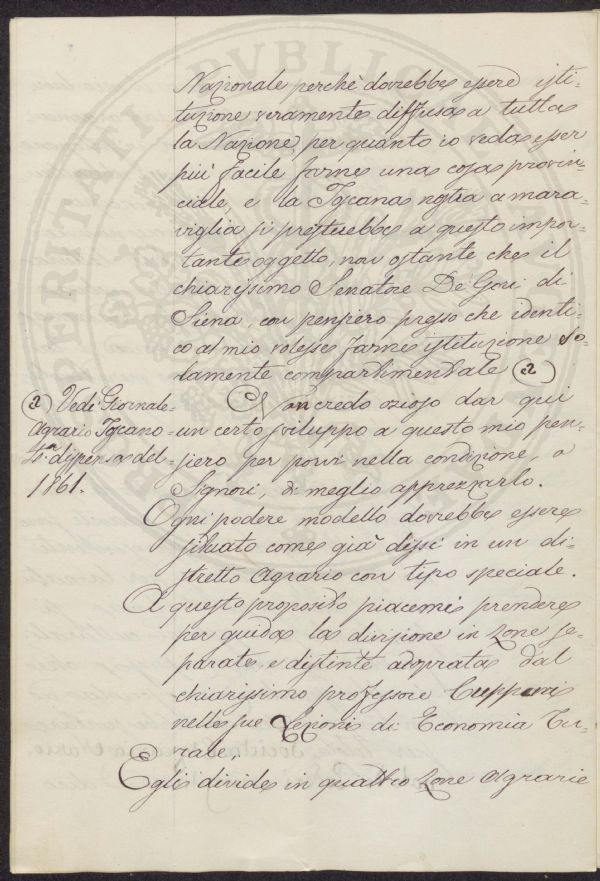 Nazionale perchè dovrebbe essere isti-
tuzione veramente diffusa a tutta
la Nazione, per quanto io veda esser
più facile farne una cosa provin-
ciale, e la Toscana nostra a mara-
viglia si presterebbe a questo impor-
tante oggetto, non ostante che il
chiarissimo Senatore De Gori di
Siena, con pensiero presso che identi-
co al mio volesse farne istituzione so-
lamente compartimentale (2)
Non credo ozioso dar qui
un certo sviluppo a questo mio pen-
siero per porvi nella condizione, o
Signori, di meglio apprezzarlo.
Ogni podere modello dovrebbe essere
situato come già dissi in un di-
stretto Agrario con tipo speciale.
A questo proposito piacemi prendere
per guida la divisione in zone se-
parate, e distinte adoprata dal
chiarissimo professore Cuppari
nelle sue Lezioni di Economia Ru-
rale.
Egli divide in quattro zone Agrarie
(2) Vedi Giornale
Agrario Toscano
dispensa del
1861.
PERITATI PVBLIC